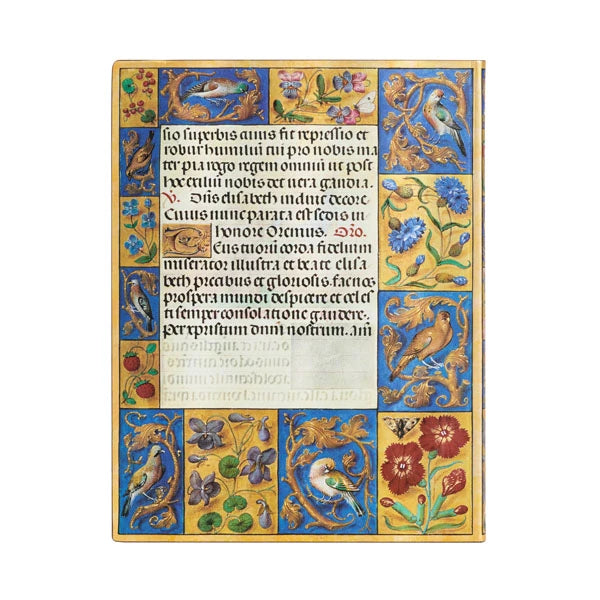 sio superbis cuius fit repressio et
robur humilium tu pro nobis ma
ter pia rogo regem omniū ut post
hoc exiliū nobis det vera gaudia.
V. Diis elisabeth induit decore
Cuius nunc parata est sedis in
honore Oremus. Oro.
Eus tuorū corda fidelium
miserator illustra et beate elisa
beth precibus et gloriosis. fac nos
prospera mundi despicere et celes
ti semper consolatione gaudere.
Per xpristum dnm nostrum. am